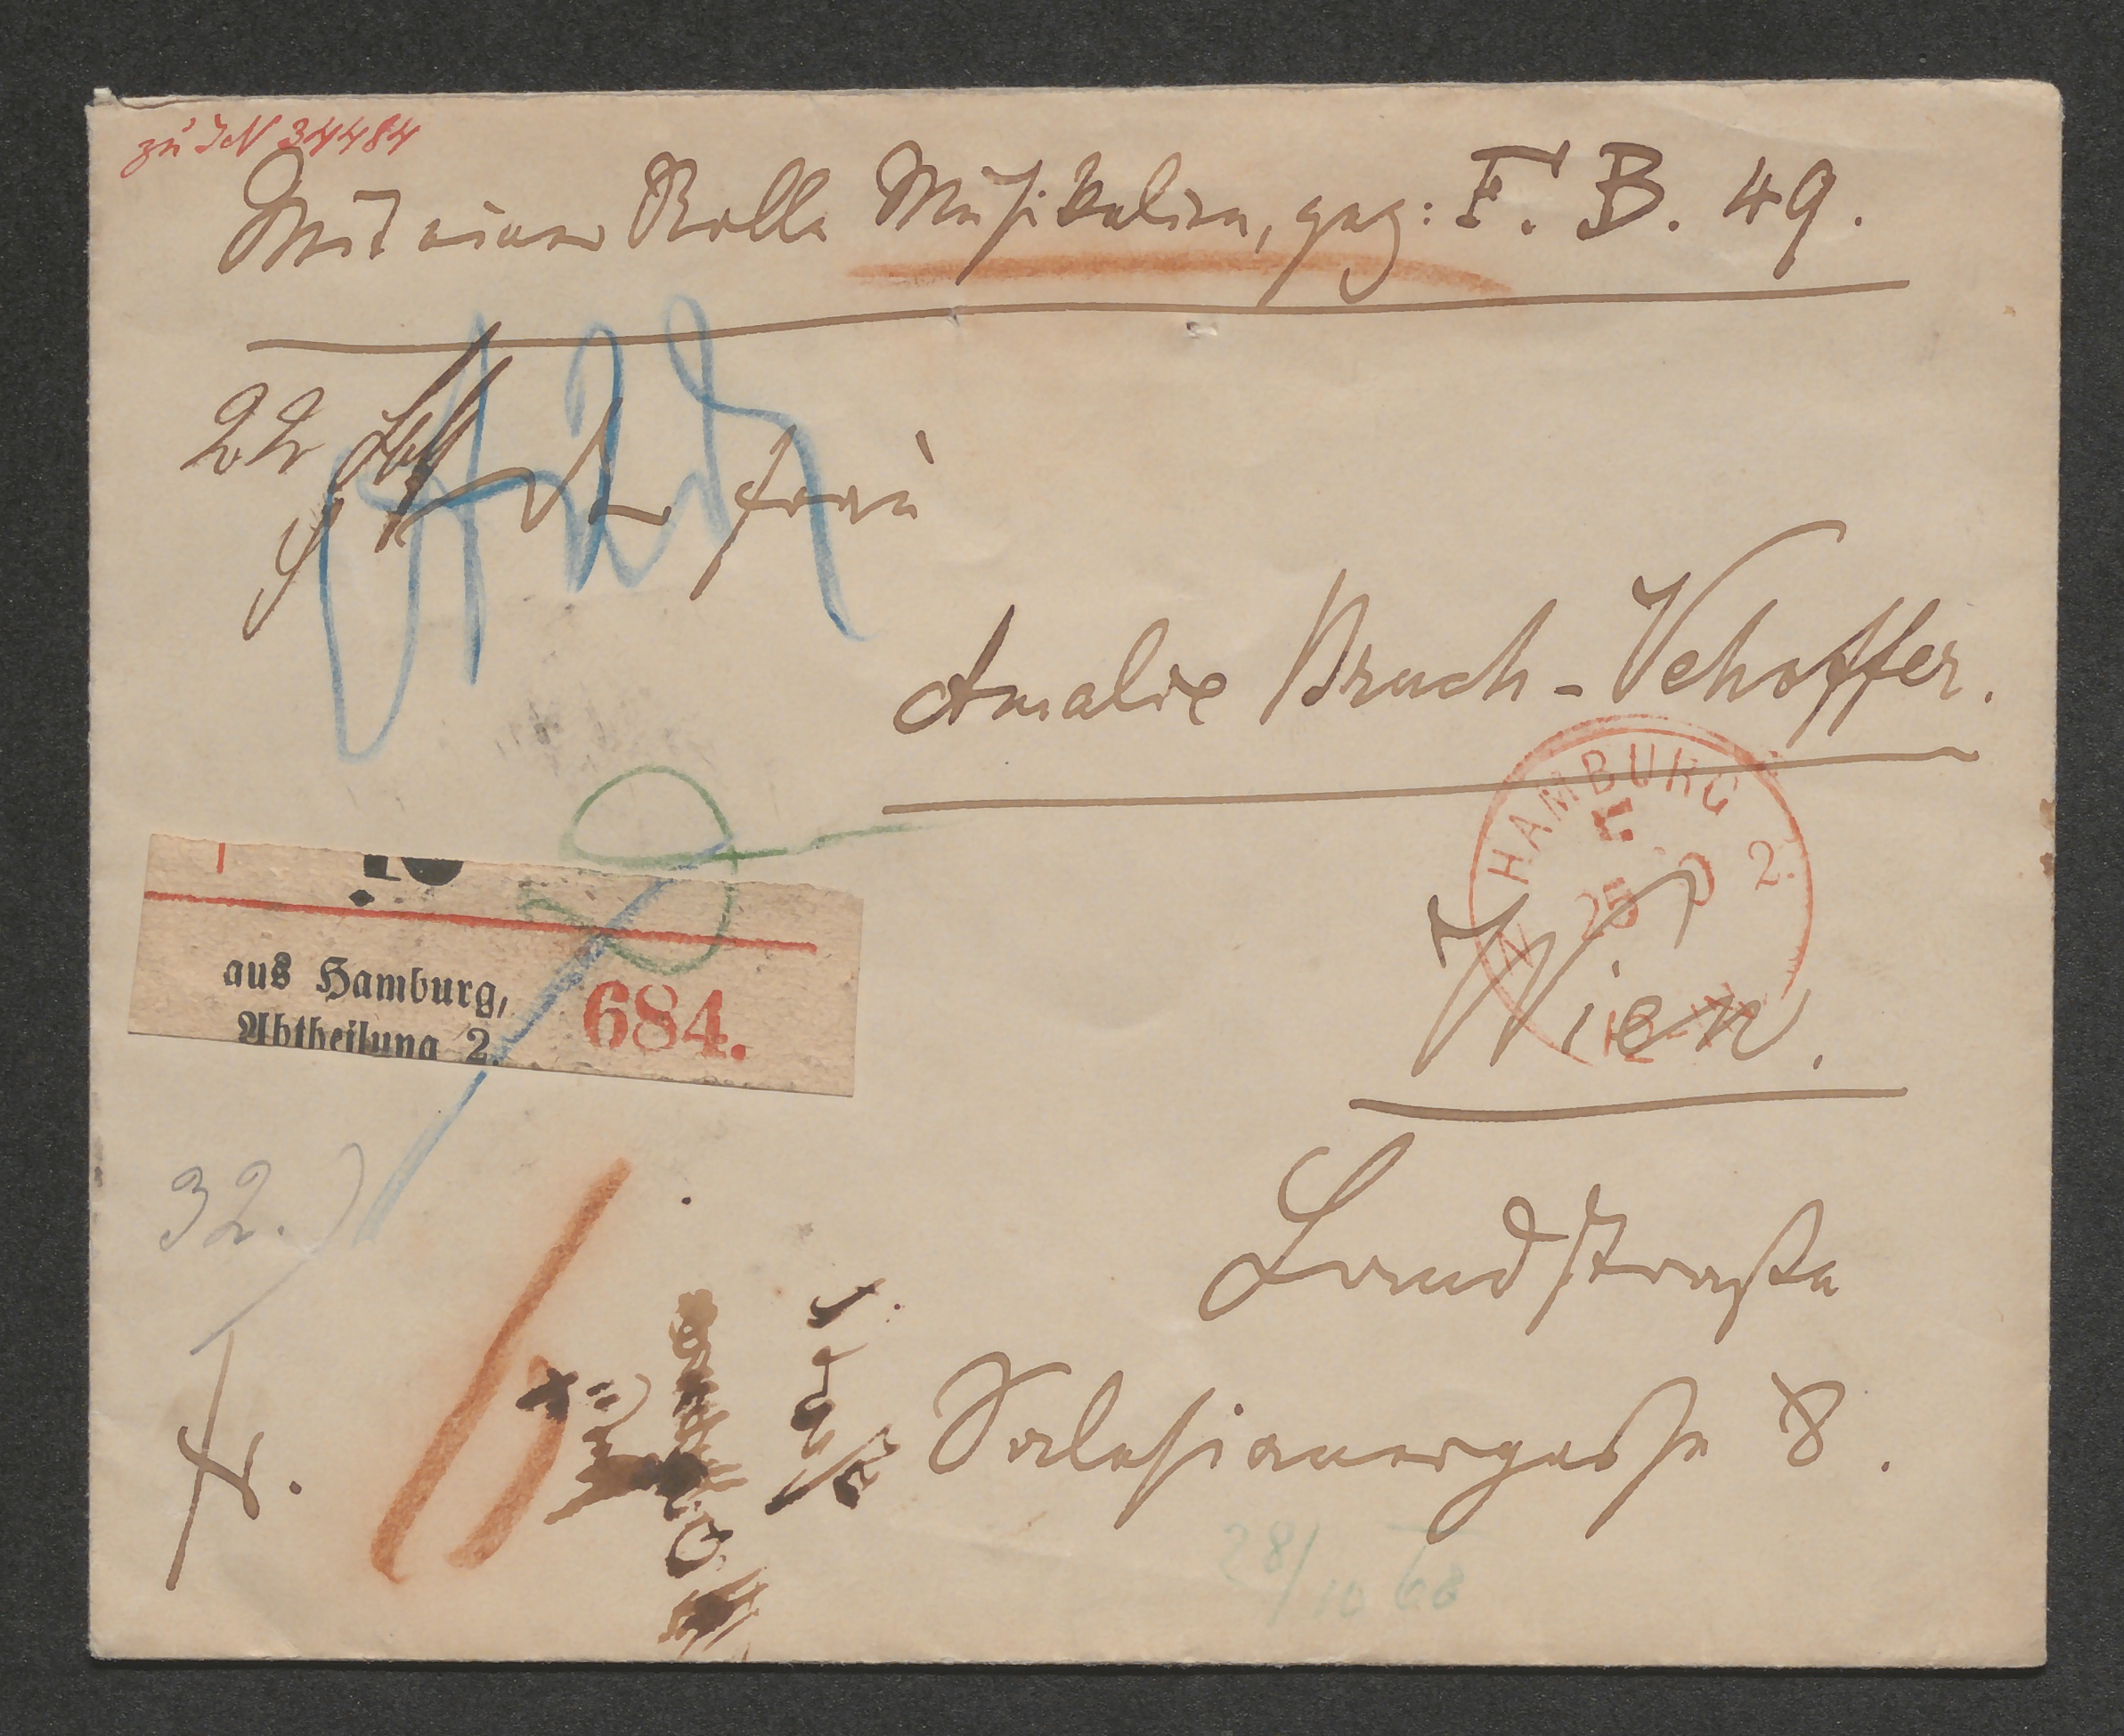 zu IN 34484
Mit einer Rolle Musikalien, gez: F. B. 49.
22
Frau
Amalie Bruch-Vehoffer.
HAMBURG
2.
25
N
aus Hamburg,
Abtheilung 2.
684.
Wien.
32.
Landstraße
Salesianergasse 8.
fr.
28/10 68